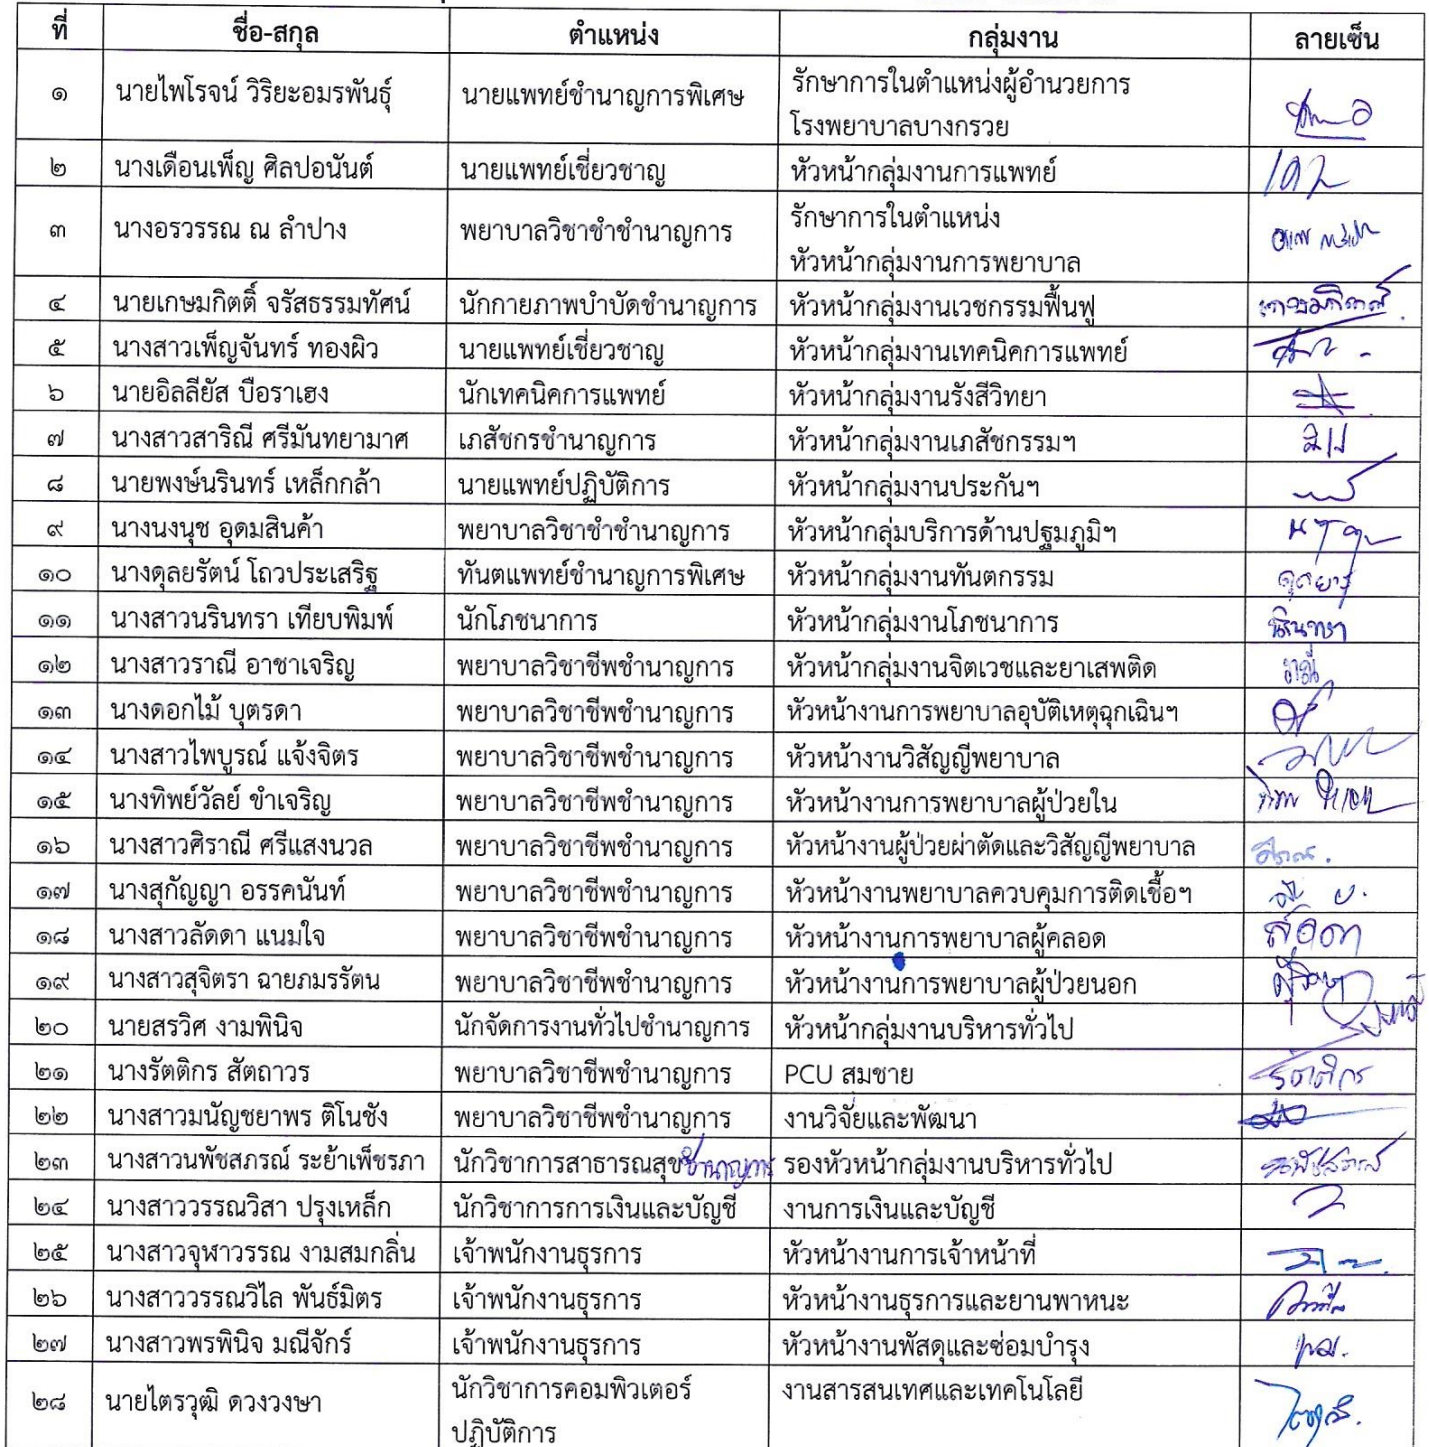 ที่ ชื่อ-สกุล ตำแหน่ง กลุ่มงาน ลายเซ็น
๑ นายไพโรจน์ วิริยะอมรพันธุ์ นายแพทย์ชำนาญการพิเศษ รักษาการในตำแหน่งผู้อำนวยการ
โรงพยาบาลบางกรวย
๒ นางเดือนเพ็ญ ศิลปอนันต์ นายแพทย์เชี่ยวชาญ หัวหน้ากลุ่มงานการแพทย์
๓ นางอรวรรณ ณ ลำปาง พยาบาลวิชาชำชำนาญการ รักษาการในตำแหน่ง
หัวหน้ากลุ่มงานการพยาบาล
๔ นายเกษมกิตติ์ จรัสธรรมทัศน์ นักกายภาพบำบัดชำนาญการ หัวหน้ากลุ่มงานเวชกรรมฟื้นฟู
๕ นางสาวเพ็ญจันทร์ ทองผิว นายแพทย์เชี่ยวชาญ หัวหน้ากลุ่มงานเทคนิคการแพทย์
๖ นายอิลลียัส บือราเฮง นักเทคนิคการแพทย์ หัวหน้ากลุ่มงานรังสีวิทยา
๗ นางสาวสาริณี ศรีมันทยามาศ เภสัชกรชำนาญการ หัวหน้ากลุ่มงานเภสัชกรรมฯ
๘ นายพงษ์นรินทร์ เหล็กกล้า นายแพทย์ปฏิบัติการ หัวหน้ากลุ่มงานประกันฯ
๙ นางนงนุช อุดมสินค้า พยาบาลวิชาชำชำนาญการ หัวหน้ากลุ่มบริการด้านปฐมภูมิฯ
๑๐ นางดุลยรัตน์ โถวประเสริฐ ทันตแพทย์ชำนาญการพิเศษ หัวหน้ากลุ่มงานทันตกรรม
๑๑ นางสาวนรินทรา เทียบพิมพ์ นักโภชนาการ หัวหน้ากลุ่มงานโภชนาการ นรินทรา
๑๒ นางสาวราณี อาชาเจริญ พยาบาลวิชาชีพชำนาญการ หัวหน้ากลุ่มงานจิตเวชและยาเสพติด ราณี
๑๓ นางดอกไม้ บุตรดา พยาบาลวิชาชีพชำนาญการ หัวหน้างานการพยาบาลอุบัติเหตุฉุกเฉินฯ
๑๔ นางสาวไพบูรณ์ แจ้งจิตร พยาบาลวิชาชีพชำนาญการ หัวหน้างานวิสัญญีพยาบาล
๑๕ นางทิพย์วัลย์ ขำเจริญ พยาบาลวิชาชีพชำนาญการ หัวหน้างานการพยาบาลผู้ป่วยใน
๑๖ นางสาวศิราณี ศรีแสงนวล พยาบาลวิชาชีพชำนาญการ หัวหน้างานผู้ป่วยผ่าตัดและวิสัญญีพยาบาล
๑๗ นางสุกัญญา อรรคนันท์ พยาบาลวิชาชีพชำนาญการ หัวหน้างานพยาบาลควบคุมการติดเชื้อฯ
๑๘ นางสาวลัดดา แนมใจ พยาบาลวิชาชีพชำนาญการ หัวหน้างานการพยาบาลผู้คลอด ลัดดา
๑๙ นางสาวสุจิตรา ฉายภมรรัตน พยาบาลวิชาชีพชำนาญการ หัวหน้างานการพยาบาลผู้ป่วยนอก
๒๐ นายสรวิศ งามพินิจ นักจัดการงานทั่วไปชำนาญการ หัวหน้ากลุ่มงานบริหารทั่วไป
๒๑ นางรัตติกร สัตถาวร พยาบาลวิชาชีพชำนาญการ PCU สมชาย รัตติกร
๒๒ นางสาวมนัญชยาพร ติโนชัง พยาบาลวิชาชีพชำนาญการ งานวิจัยและพัฒนา
๒๓ นางสาวนพัชสภรณ์ ระย้าเพ็ชรภา นักวิชาการสาธารณสุขชำนาญการ รองหัวหน้ากลุ่มงานบริหารทั่วไป
๒๔ นางสาววรรณวิสา ปรุงเหล็ก นักวิชาการการเงินและบัญชี งานการเงินและบัญชี
๒๕ นางสาวจุฬาวรรณ งามสมกลิ่น เจ้าพนักงานธุรการ หัวหน้างานการเจ้าหน้าที่
๒๖ นางสาววรรณวิไล พันธ์มิตร เจ้าพนักงานธุรการ หัวหน้างานธุรการและยานพาหนะ
๒๗ นางสาวพรพินิจ มณีจักร์ เจ้าพนักงานธุรการ หัวหน้างานพัสดุและซ่อมบำรุง
๒๘ นายไตรวุฒิ ดวงวงษา นักวิชาการคอมพิวเตอร์ งานสารสนเทศและเทคโนโลยี
ปฏิบัติการ